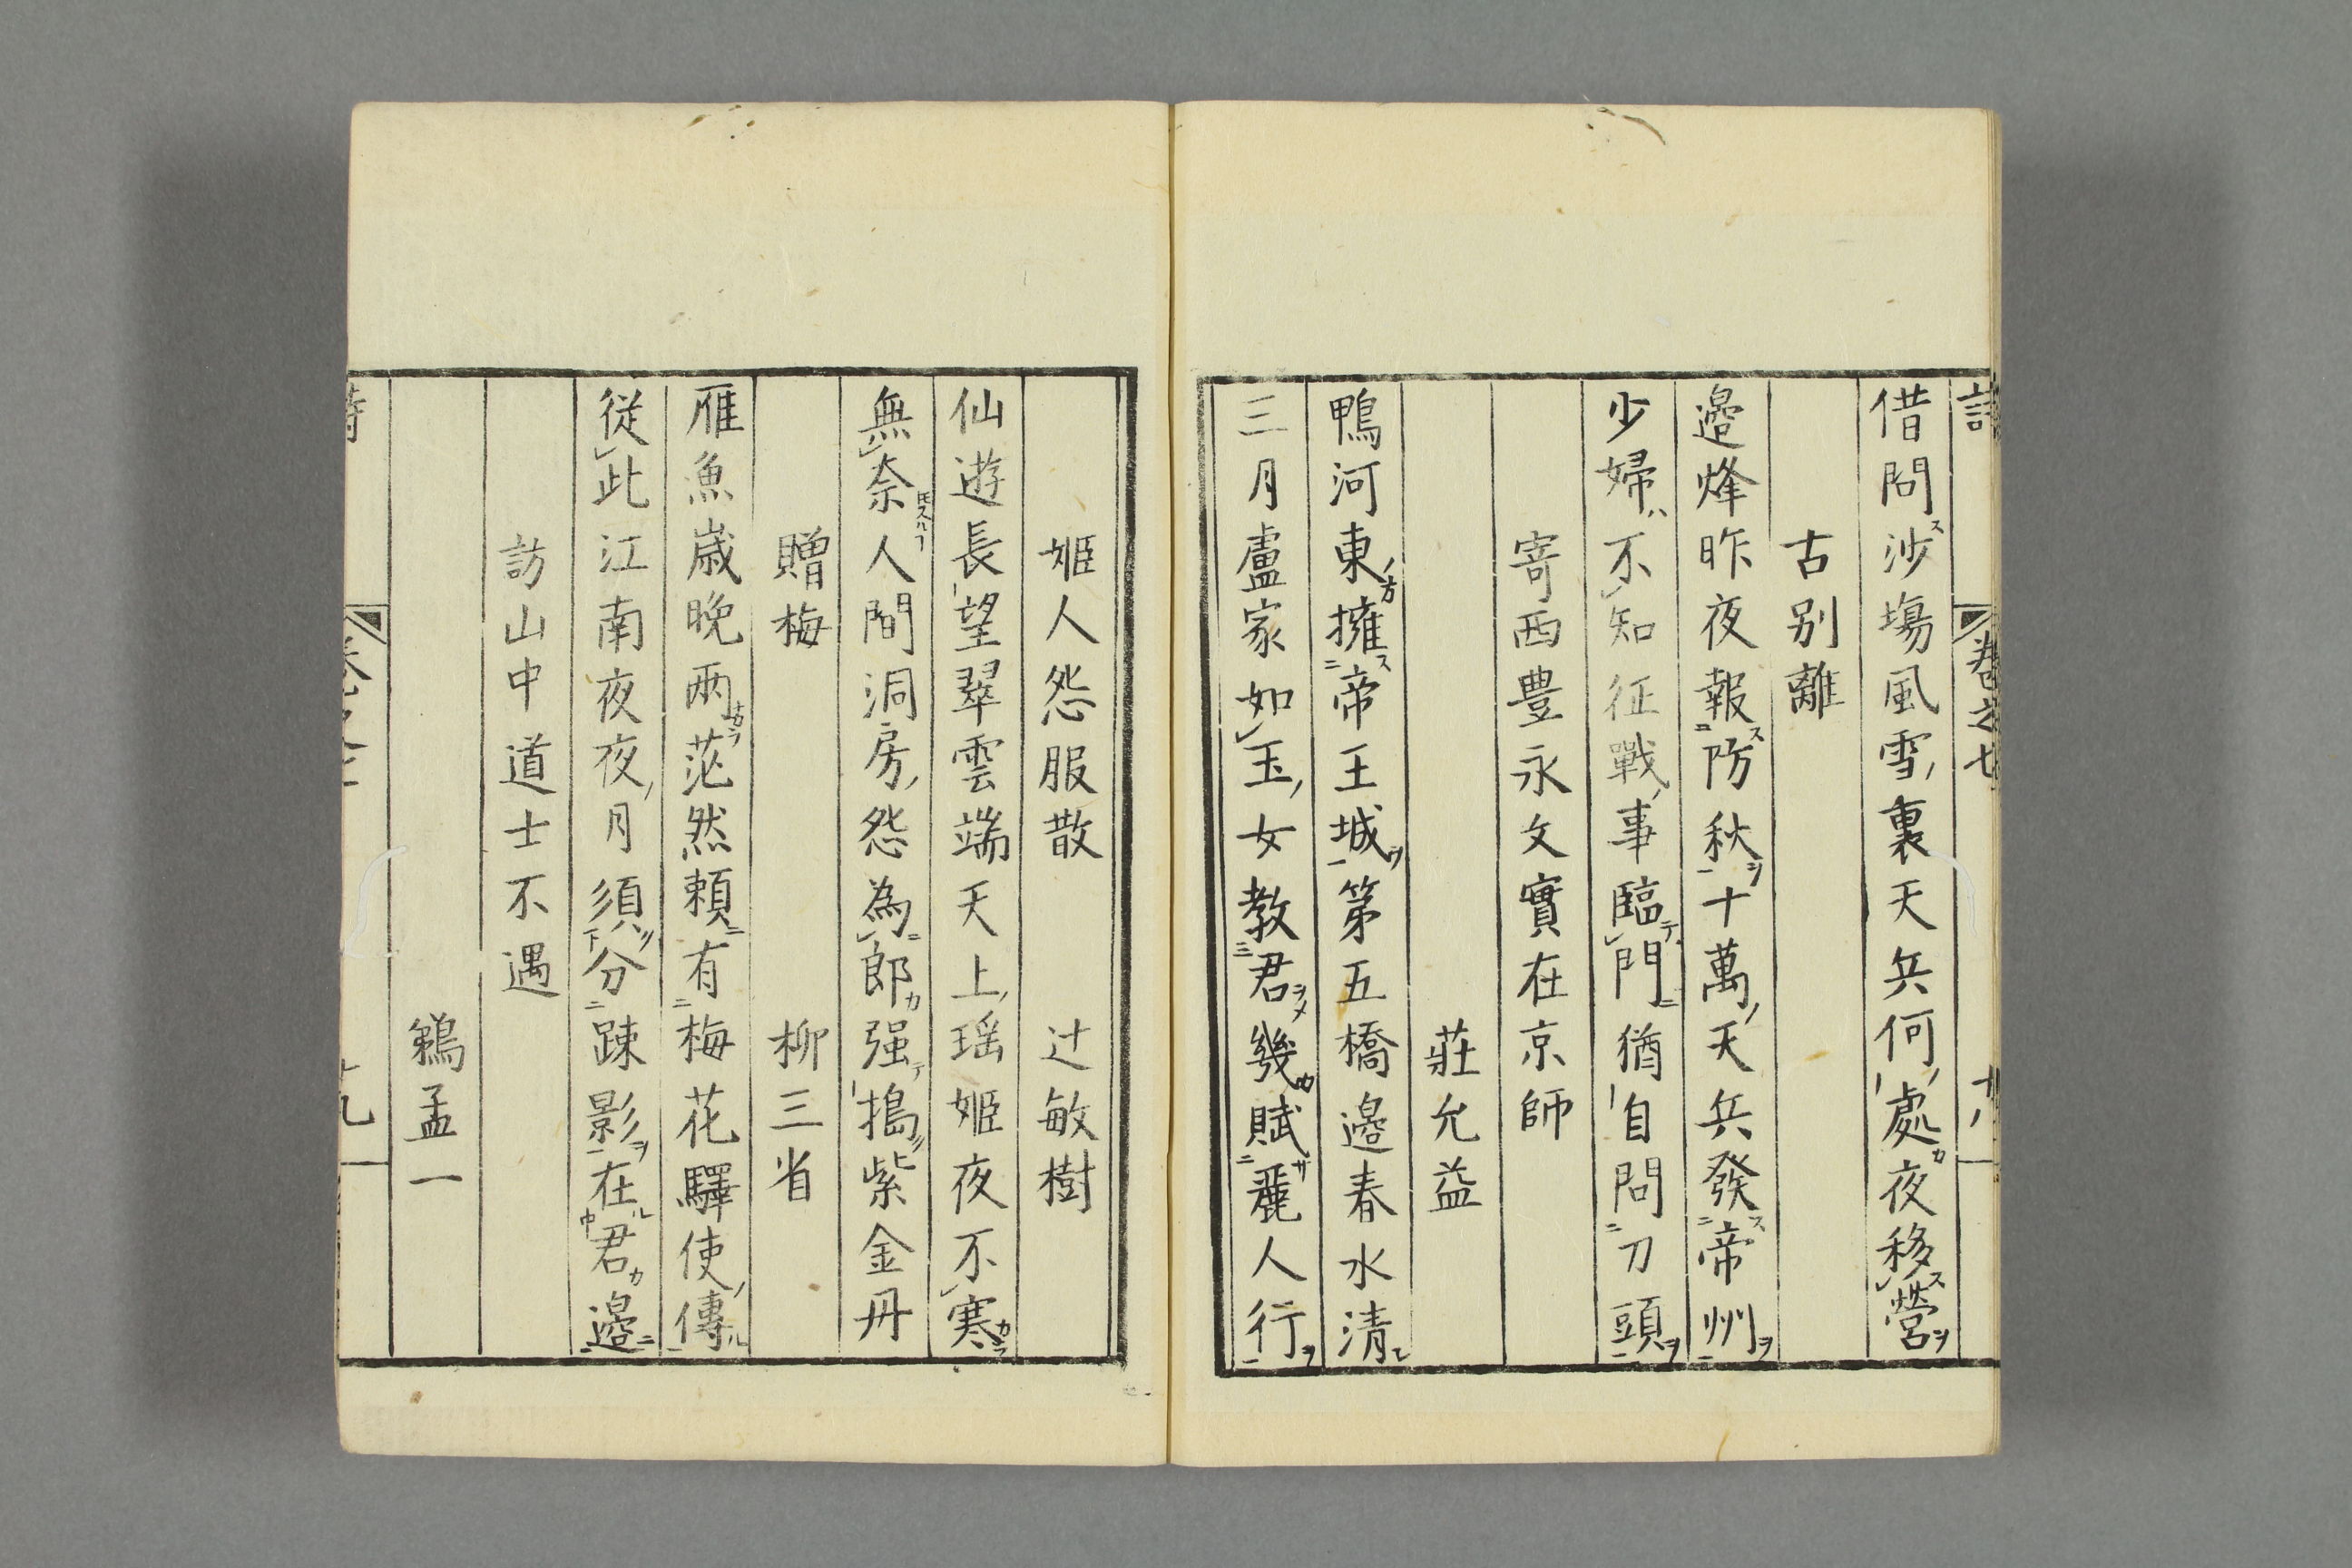 卷之七
借問沙場風雪裏天兵何處夜移營
古別離
邉烽昨夜報防秋十萬天兵發帝州
少婦不知征戰事臨門猶自問刀頭
寄西豊永文實在京師
莊允益
鴨河東擁帝王城第五橋邉春水清
三月盧家如玉女教君幾賦麗人行
姬人怨服散 辻敏樹
仙遊長望翠雲端天上瑶姬夜不寒
無奈人間洞房怨為郎强搗紫金丹
贈梅 柳三省
雁魚歳晚兩茫然頼有梅花驛使傳
從此江南夜夜月須分踈影在君邉
訪山中道士不遇
鵜孟一